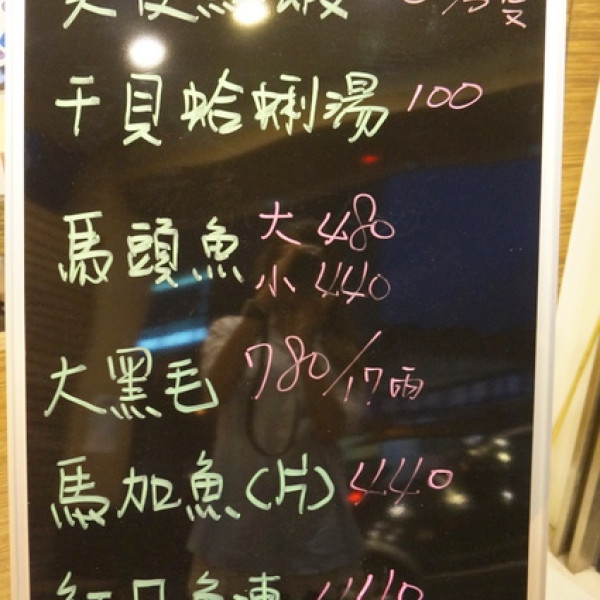 干貝蛤蜊湯 100
馬頭魚 大 480
小 440
大黑毛 780/17兩
馬加魚(片) 440
440